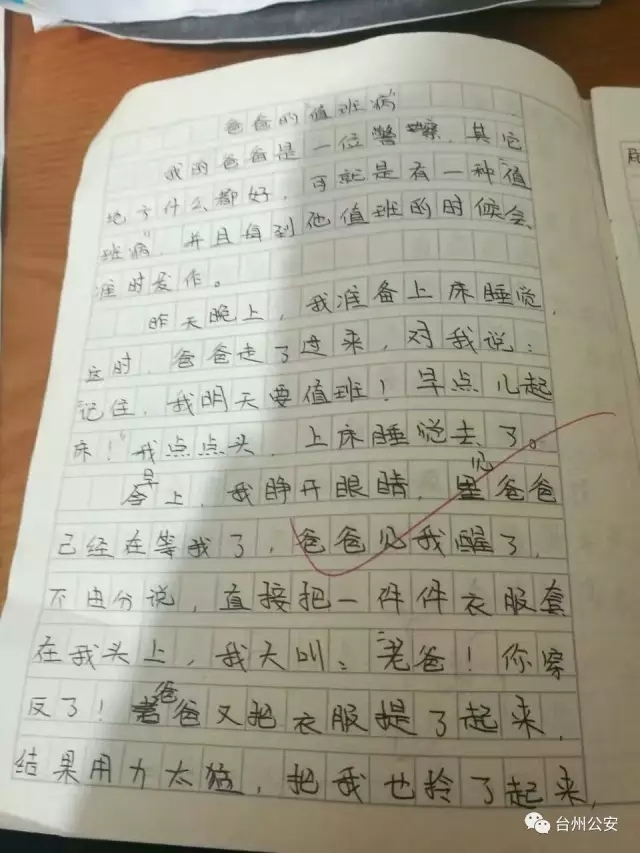 爸爸的"值班病"
我的爸爸是一位警察，其它
地方什么都好，可就是有一种"值
班病"，并且每到他值班的时候会
准时发作。
昨天晚上，我准备上床睡觉，
这时，爸爸走了过来，对我说：
记住，我明天要值班！早点儿起
床！"我点点头，上床睡觉去了。
早上，我睁开眼睛，见爸爸
已经在等我了，爸爸见我醒了，
不由分说，直接把一件件衣服套
在我头上，我大叫："老爸！你穿
反了！爸爸又把衣服提了起来，
结果用力太猛，把我也拎了起来，
台州公安